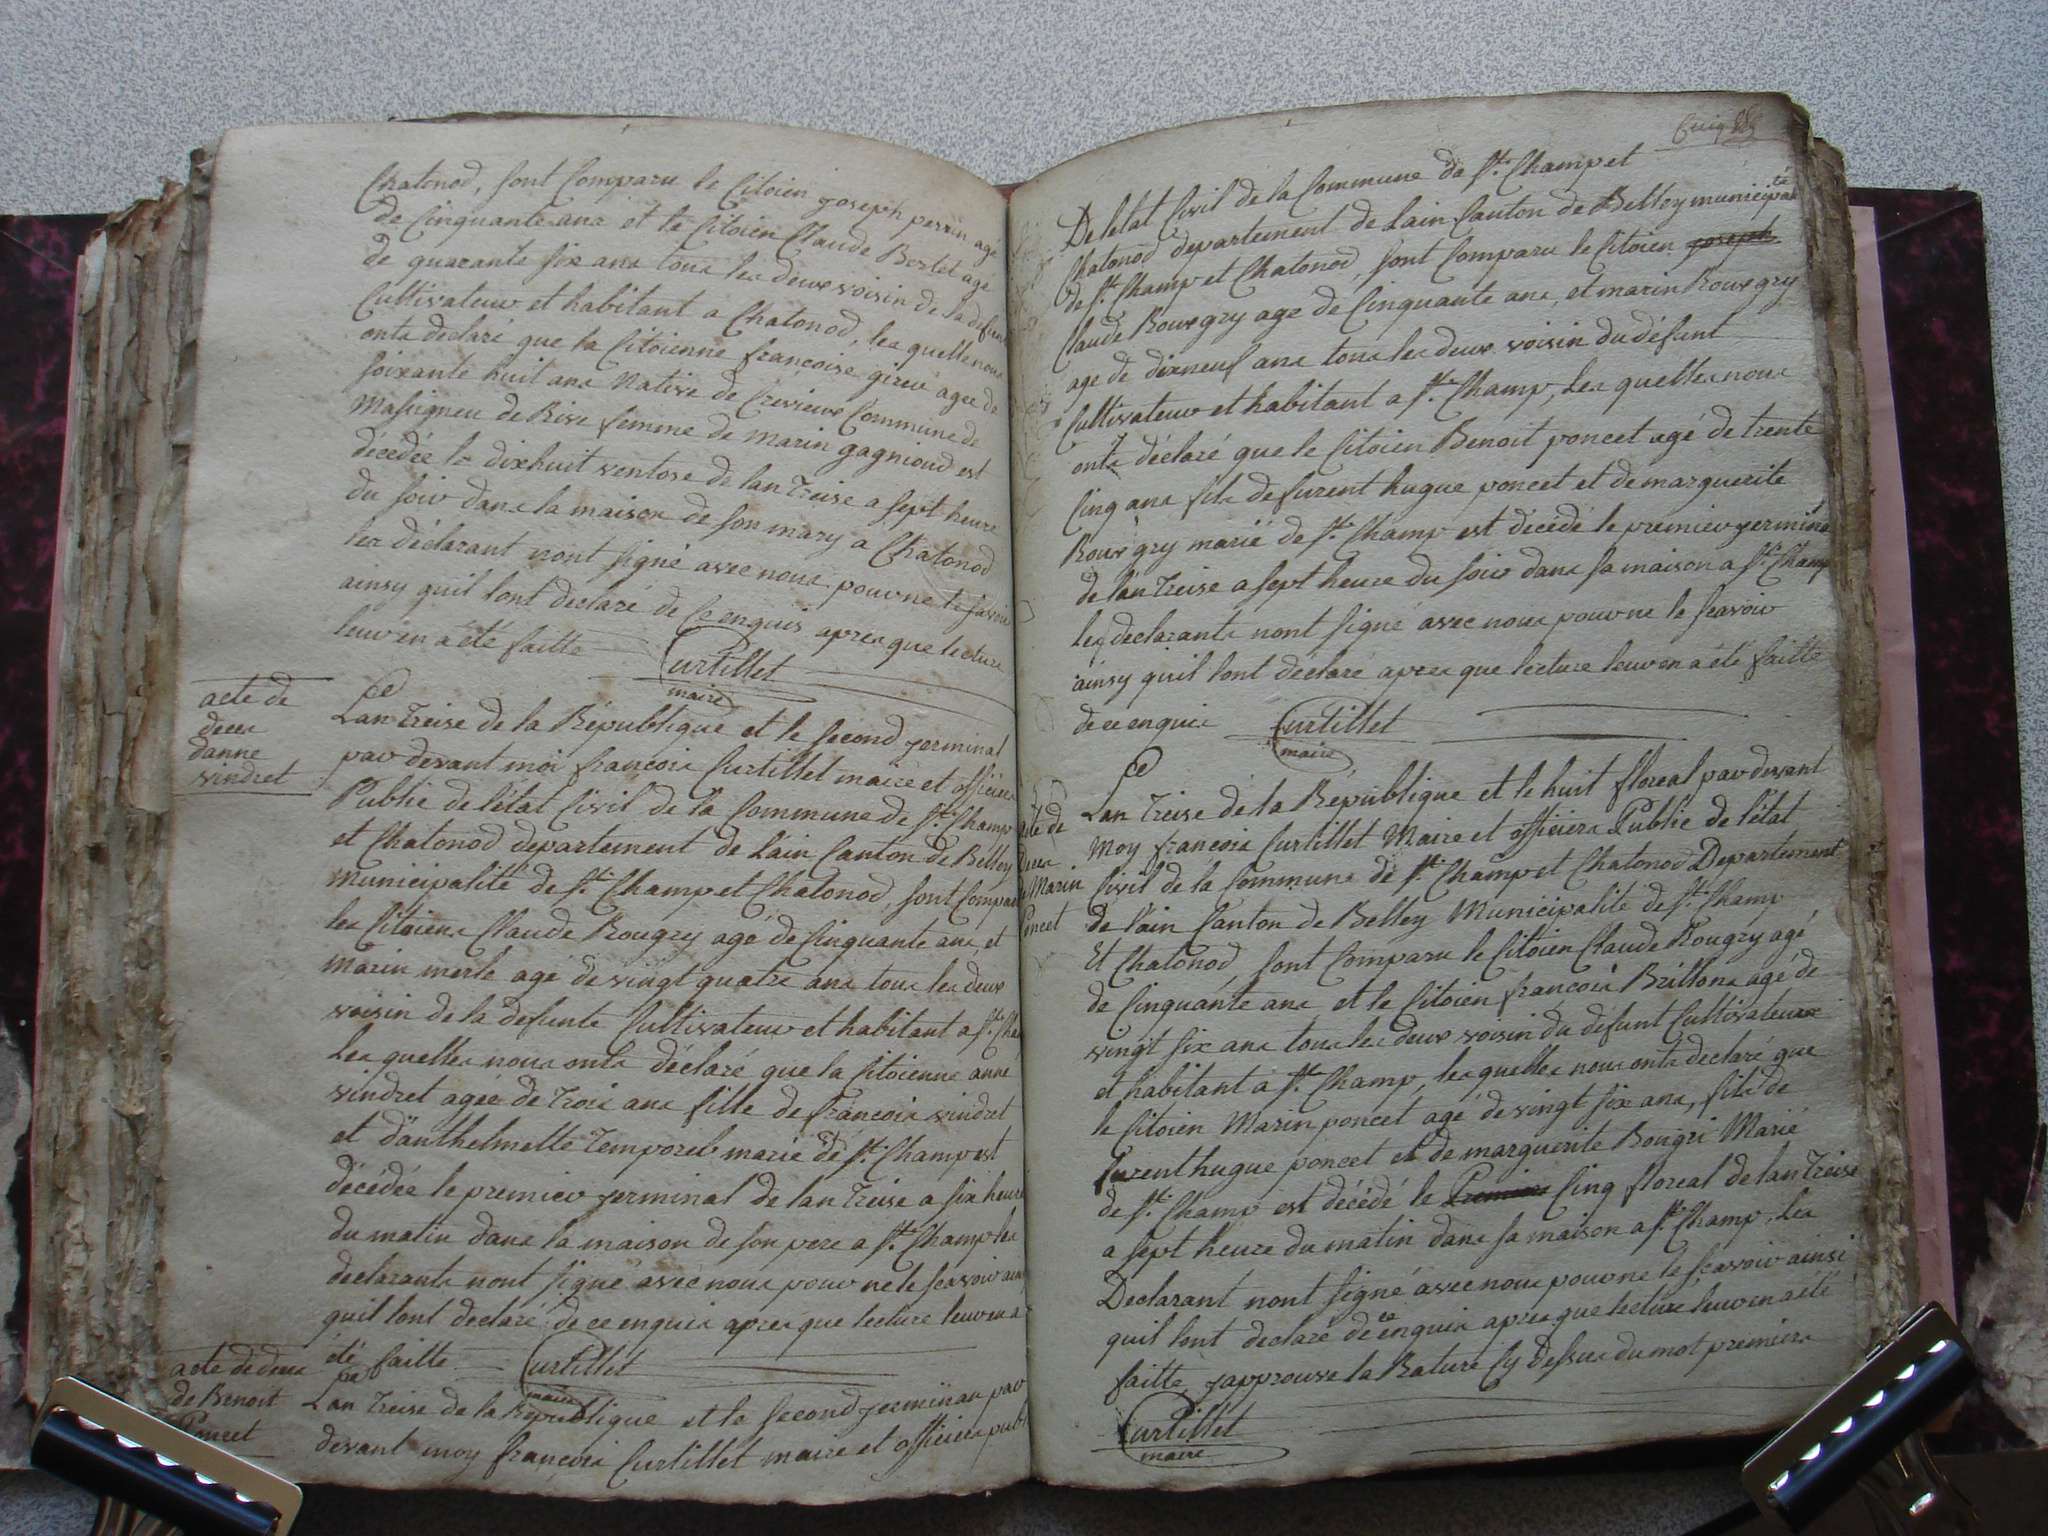 Chatonod, sont Comparu le Citoien joseph perrin agé
de Cinquante ans et le Citoien Claude Bertet agé
de quarante six ans tous les deux voisin de la defunte
Cultivateur et habitant a Chatonod, les quelle nous
onts declaré que la Citoienne francoise gireu agée de
soixante huit ans Native de Crevieux Commune de
Massigneu de Rive femme de marin gagnioud est
décédée le dixhuit ventose de lan treise a sept heure
du soir dans la maison de son mary a Chatonod
les déclarant nont signé avec nous pour ne le savoir
ainsy quil lont declaré de Ce enquis apres que lecture
leur en a été faitte
Curtillet
maire
acte de
deces
danne
vindret
Lan treise de la République et le second germinal
par devant moi francois Curtillet maire et officiers
Public de létat Civil de la Commune de St. Champ
et Chatonod departement de Lain Canton de Belley
municipalité de St. Champ et Chatonod, sont Compar
les Citoiens Claude Rougry agé de Cinquante ans, et
marin merle agé de vingt quatre ans tous les deux
voisin de la defunte Cultivateur et habitant a St. Cha
Les quelles nous onts déclaré que la Citoienne anne
vindret agée de trois ans fille de francois vindret
et d'anthelmelle temporel marié de St. Champ est
décédée le premier germinal de lan treise a six heure
du matin dans la maison de son pere a St. Champ les
declarants nont signé avec nous pour ne le scavoir ains
quil lont declaré de ce enquis apres que lecture leur en a
été faitte
Curtillet
maire
acte de deces
de Benoit
Poncet
Lan treise de la République et le second germinau par
devant moy francois Curtillet maire et officiers publ
Cuiq
De létat Civil de la Commune de St. Champ et
Chatonod departement de Lain Canton de Belley municipalité
de St. Champ et Chatonod, sont Comparu le Citoien joseph
Claude Rourgry age de Cinquante ans, et marin Rourgry
age de dixneuf ans tous les deux voisin du défunt
Cultivateur et habitant a St. Champ, Les quelles nous
onts déclaré que le Citoien Benoit poncet agé de trente
Cinq ans fils de furent hugue poncet et de marguerite
Rourgry marié de St. Champ est décédé le premier germina
de lan treise a sept heure du soir dans sa maison a St. Champ
les declarants nont signé avec nous pour ne le scavoir
ainsy quil lont déclaré apres que lecture leur en a été faitte
de ce enquis
Curtillet
maire
acte de
deces
de Marin
Poncet
Lan treise de la République et le huit floreal par devant
Moy francois Curtillet Maire et officiers Public de létat
Civil de la Commune de St. Champ et Chatonod Departement
de lain Canton de Belley Municipalité de St. Champ
Et Chatonod, sont Comparu le Citoien Claude Rougry agé
de Cinquante ans et le Citoien francois Brillons agé de
vingt six ans tous les deux voisin du défunt Cultivateur
et habitant a St. Champ, les quelles nous onts declaré que
le Citoien Marin poncet agé de vingt six ans, fils de
furent hugue poncet et de marguerite Bougri Marié
de St. Champ est décédé le Premiers Cinq floreal de lan treise
a sept heure du matin dans sa maison a St. Champ, Les
Declarant nont signé avec nous pour ne le scavoir ainsi
quil lont declaré de ce enquis apres que lecture leur en a été
faitte, japprouve la Rature Cy dessus du mot premiers
Curtillet
maire